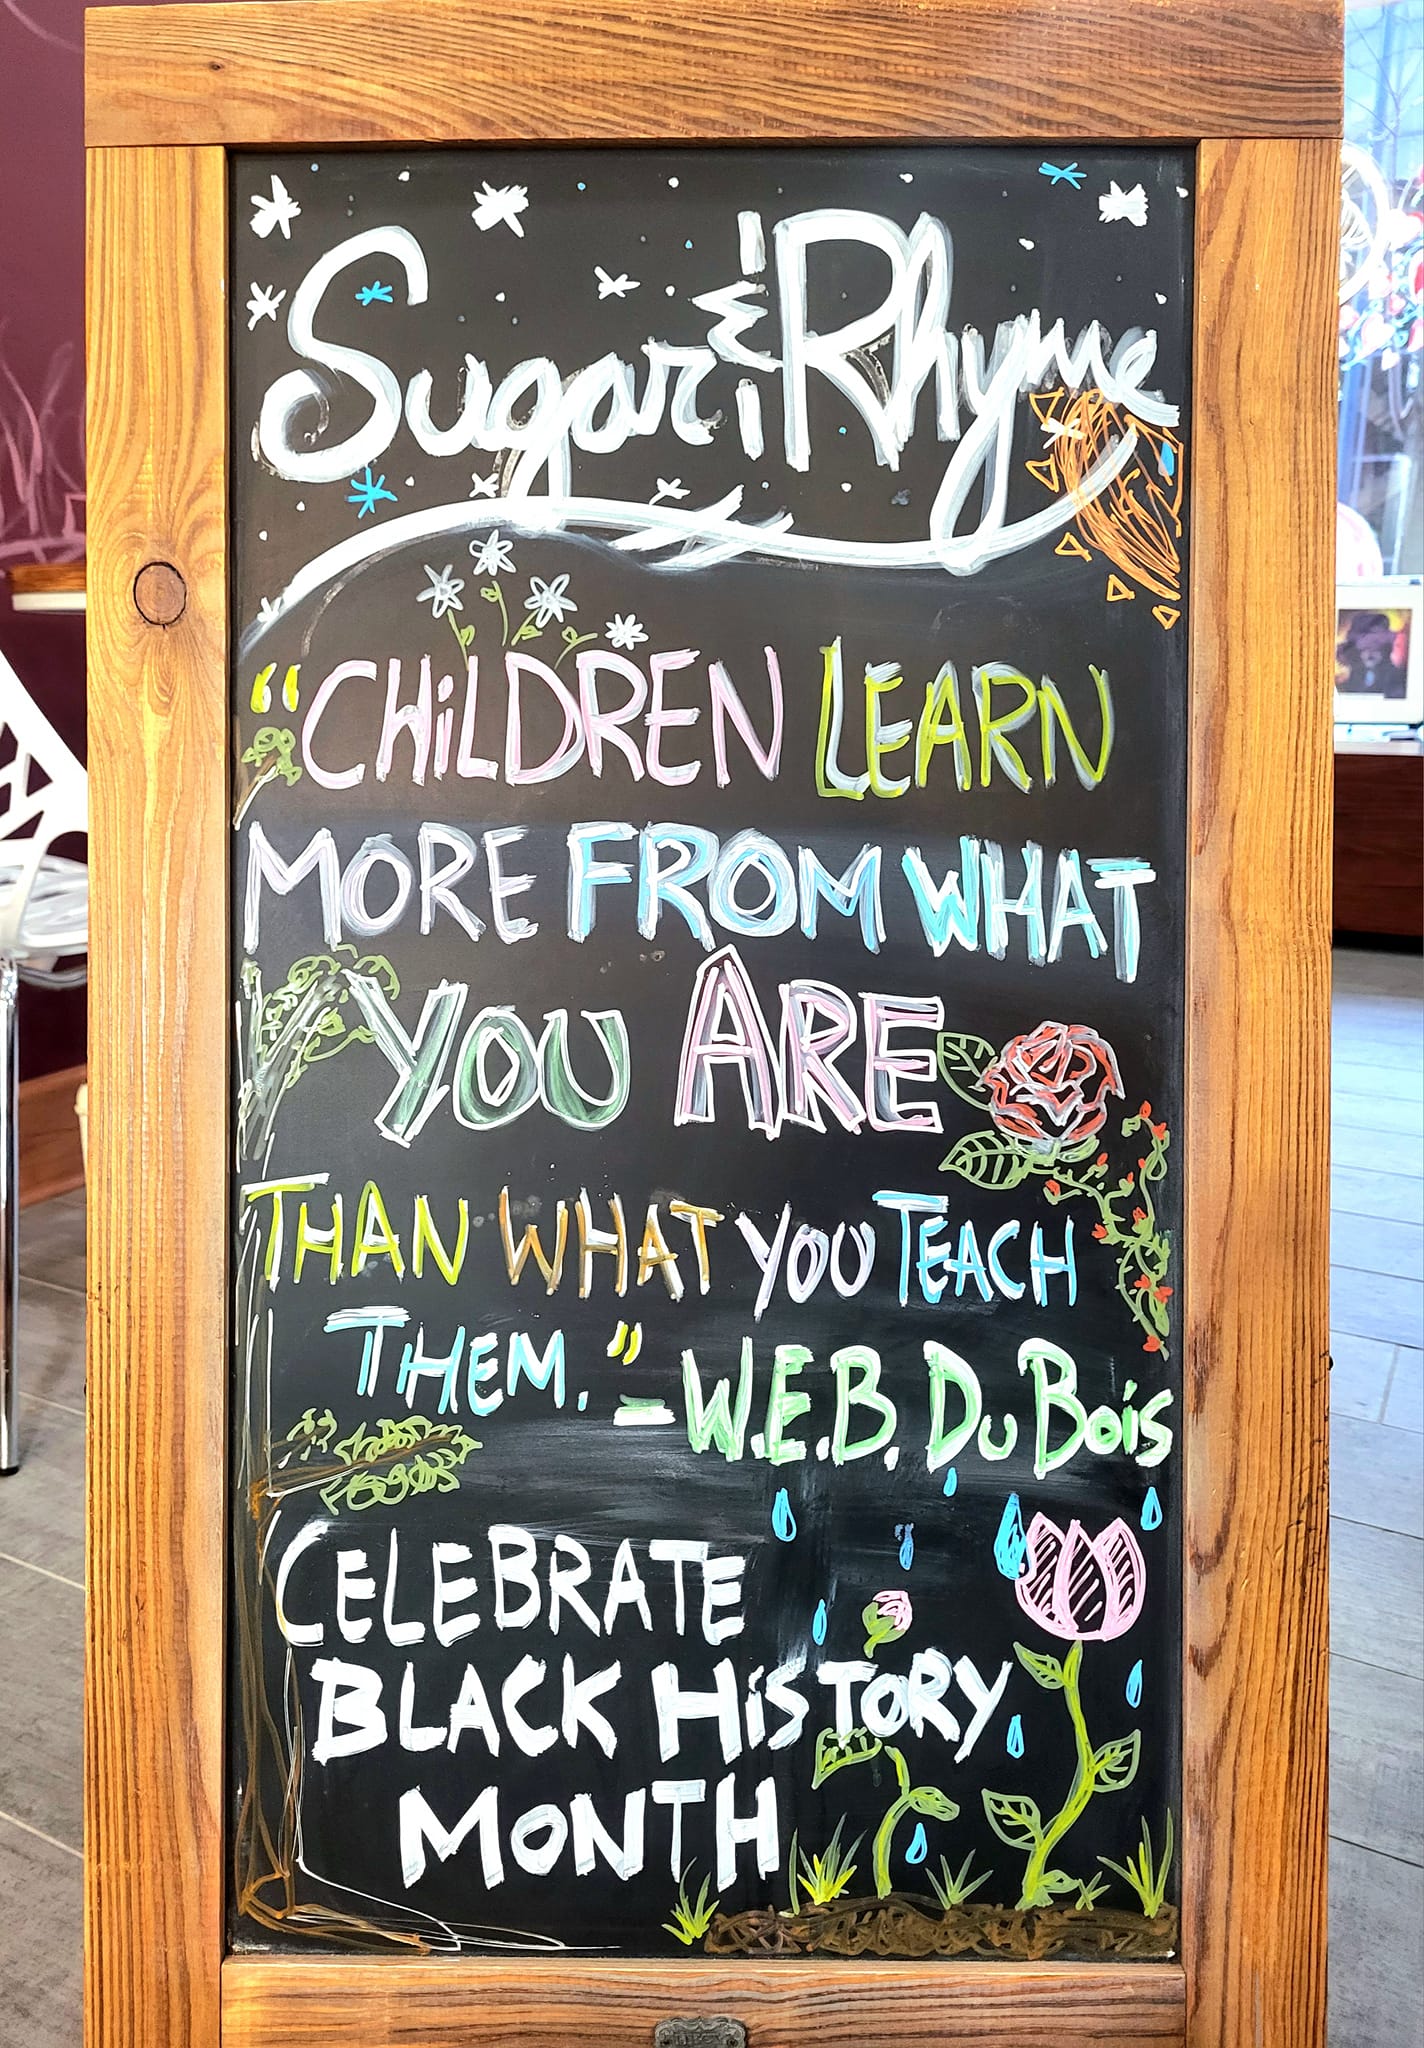 Sugar & Rhyme
“CHiLDREN LEARN
MORE FROM WHAT
YOU ARE
THAN WHAT YOU TEACH
THEM.” -W.E.B. DuBois
CELEBRATE
BLACK HiSTORY
MONTH